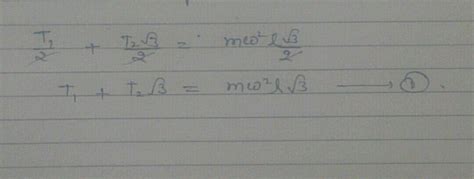 T₁/2 + T₂√3/2 = mω²l√3/2
T₁ + T₂√3 = mω²l√3 ⟶ ①.